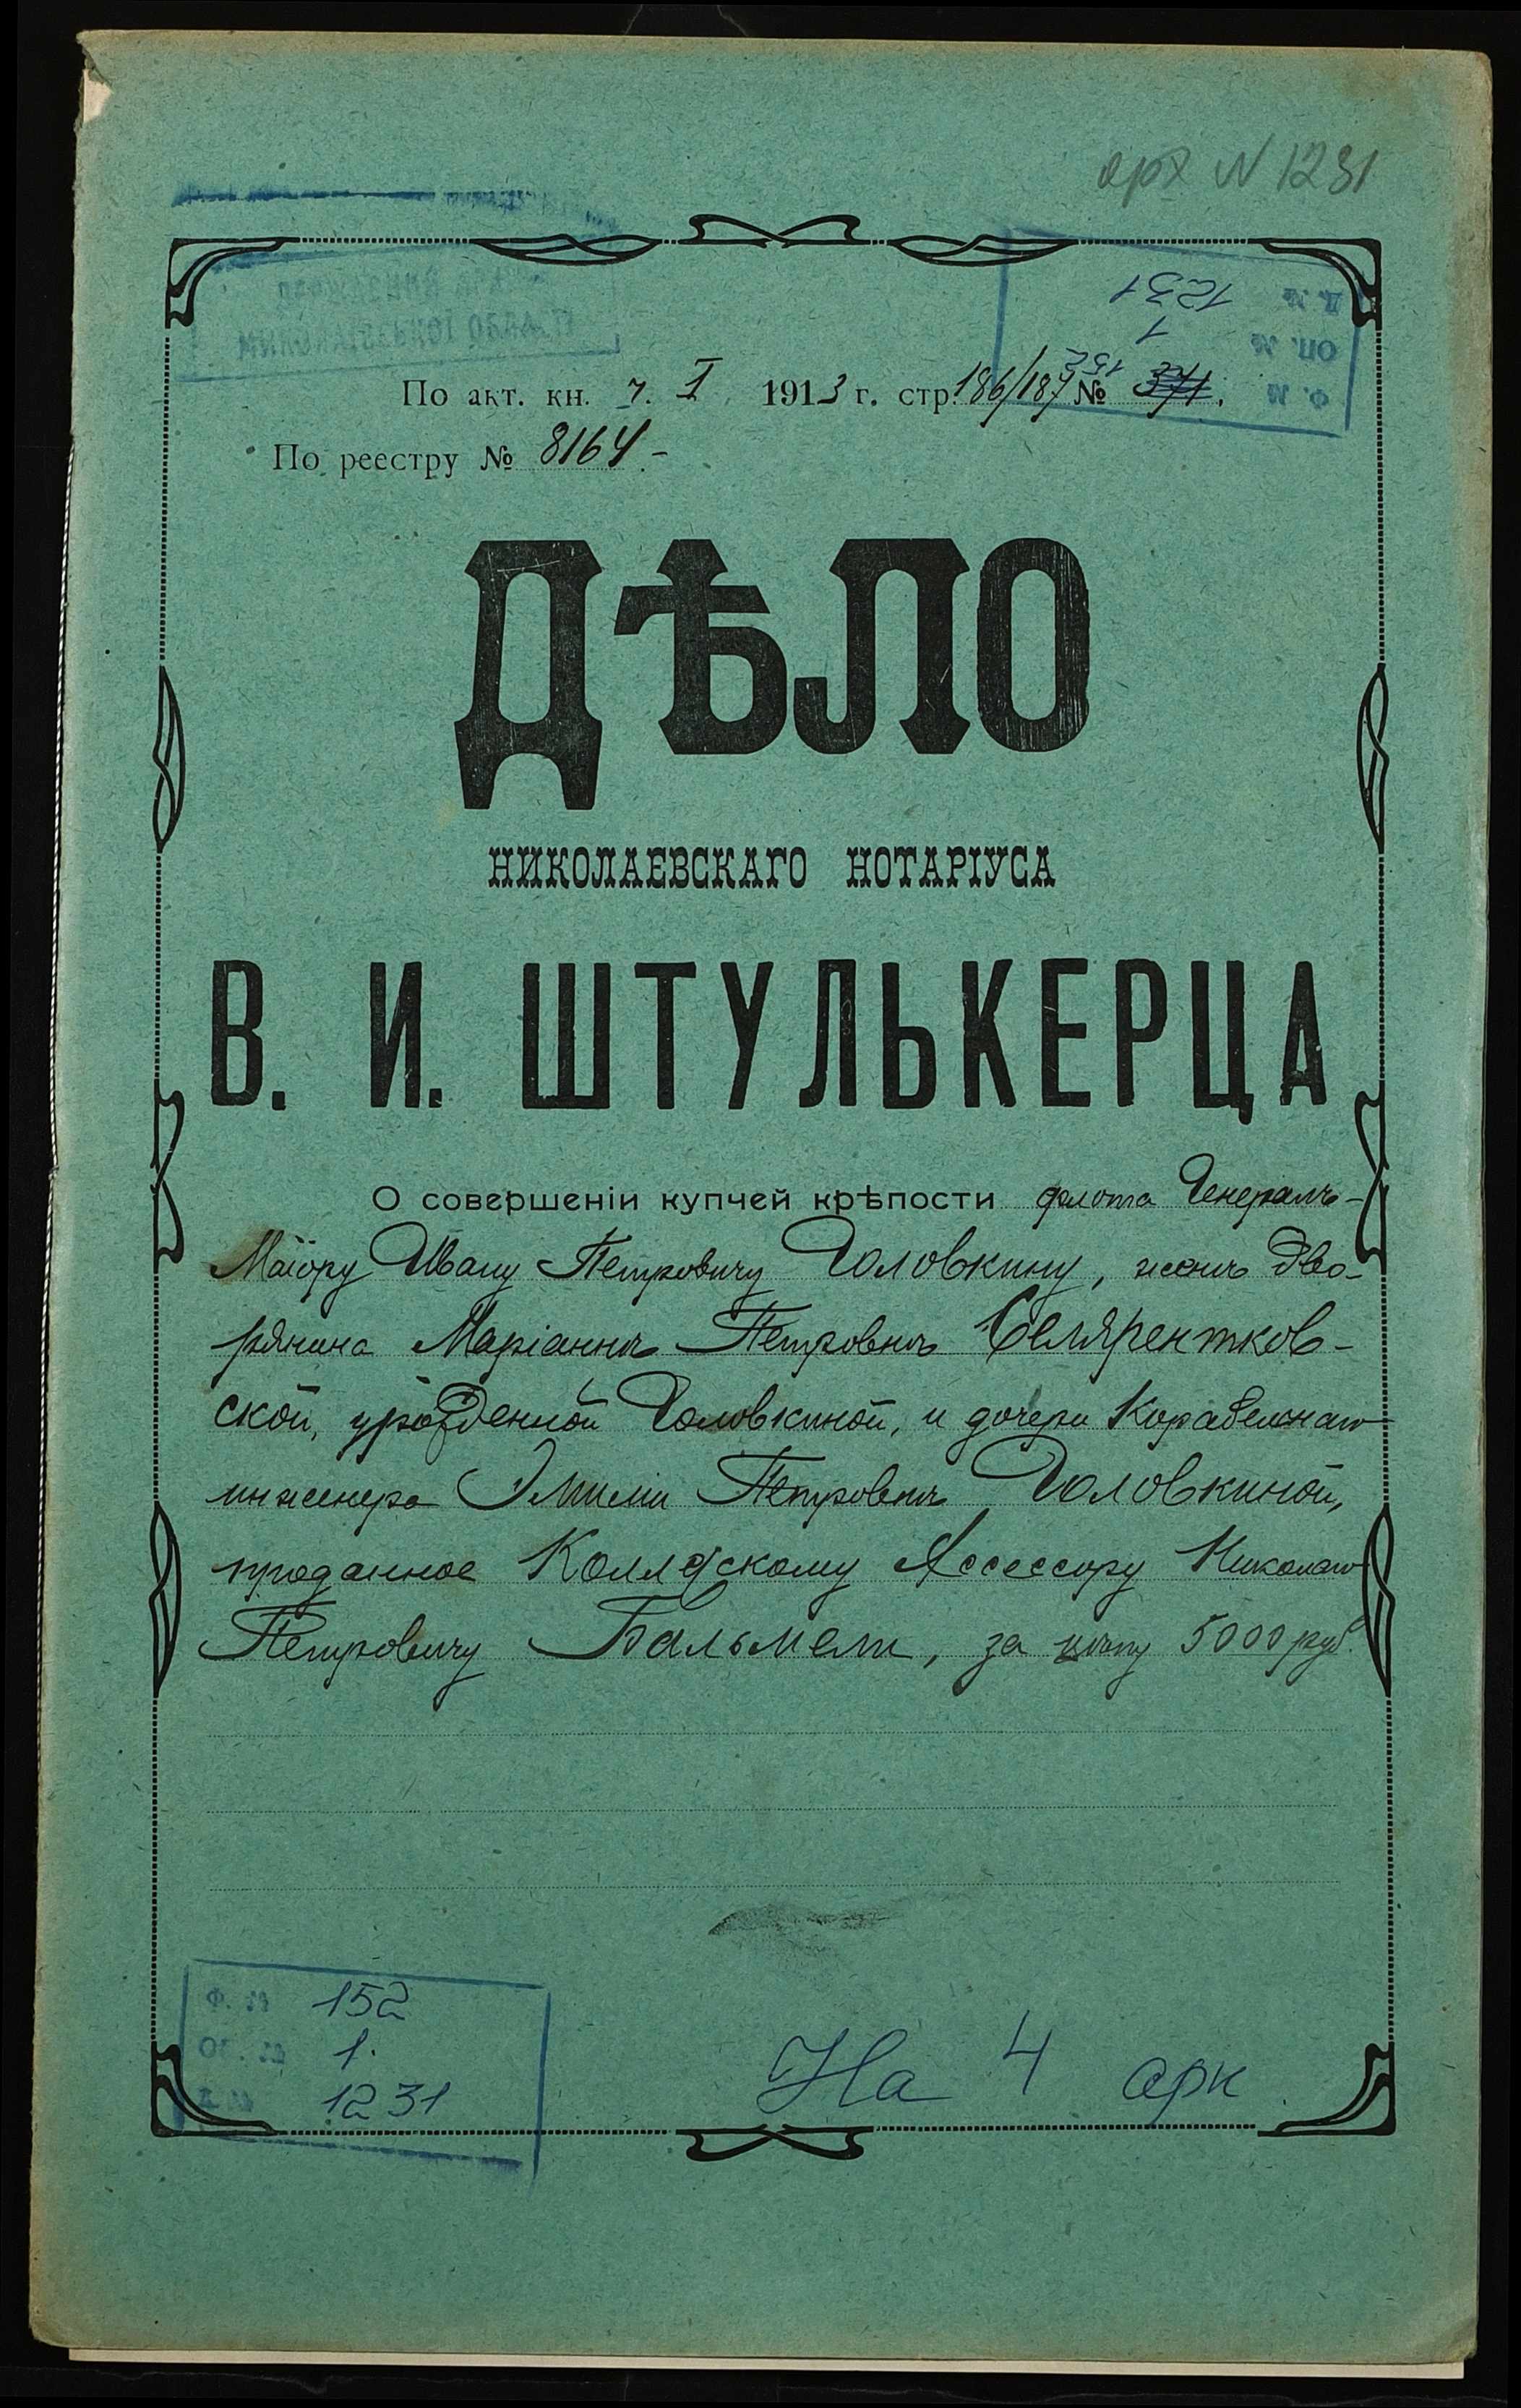 арх N 1231
Державний архів
Миколаївської області
Д. № 1231
ОП. № 1
Ф. № 152
По акт. кн. ч. I 1913 г. стр. 186/187 № 371.
По реестру № 8164.-
ДѢЛО
НИКОЛАЕВСКАГО НОТАРІУСА
В. И. ШТУЛЬКЕРЦА
О совершеніи купчей крѣпости флота Генералъ-
Маіору Ивану Петровичу Головкину, женѣ Дво-
рянина Маріаннѣ Петровнѣ
ской, урожденной Головкиной, и дочери Корабельнаго
инженера Эмиліи Петровнѣ Головкиной,
проданное Коллежскому Ассессору Николаю
Петровичу Бальмели, за цѣну 5000 руб.
Ф. № 152
Оп. № 1.
Д. № 1231
На 4 арк